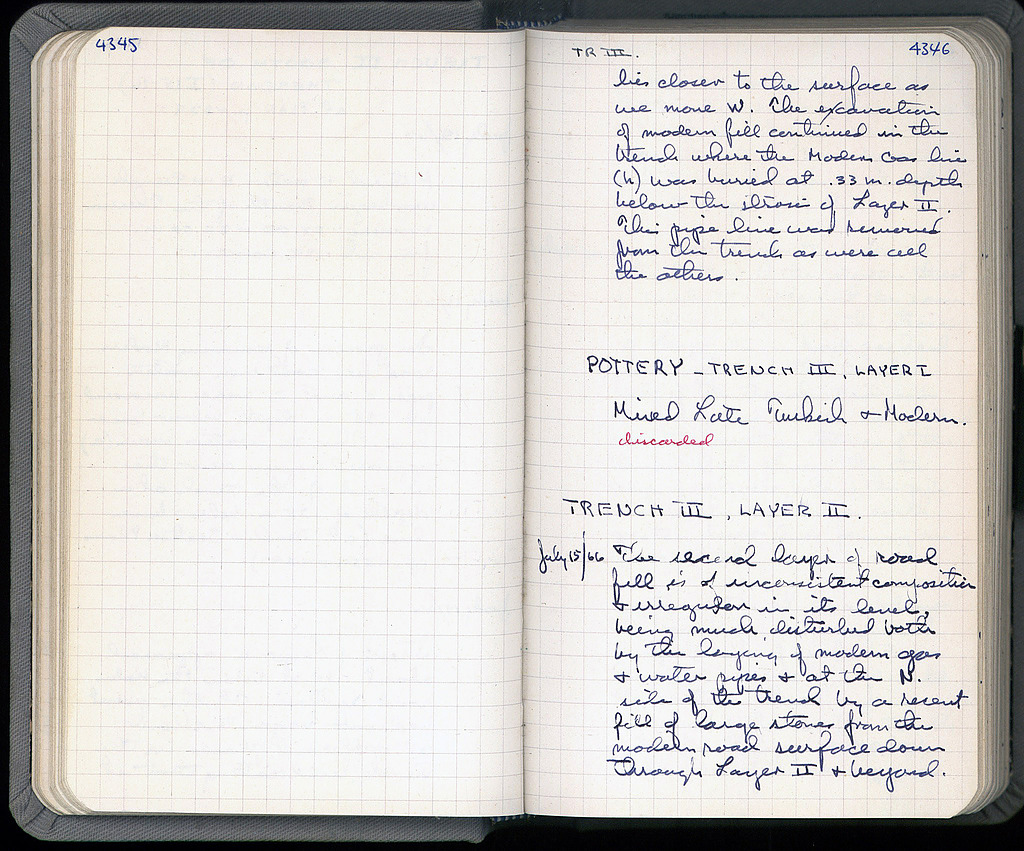 4345
TR III.
4346
lies closer to the surface as
we move W. The excavation
of modern fill continued in the
trench where the Modern Gas line
(h) was buried at .33 m. depth
below the strosis of Layer II.
This pipe line was removed
from the trench as were all
the others.
POTTERY - TRENCH III, LAYER I
Mixed Late Turkish & Modern.
discarded
TRENCH III, LAYER II.
July 15/66 The second layer of road
fill is of inconsistent composition
& irregular in its level,
being much disturbed both
by the laying of modern gas
& water pipes & at the N.
side of the trench by a recent
fill of large stones from the
modern road surface down
through Layer II & beyond.